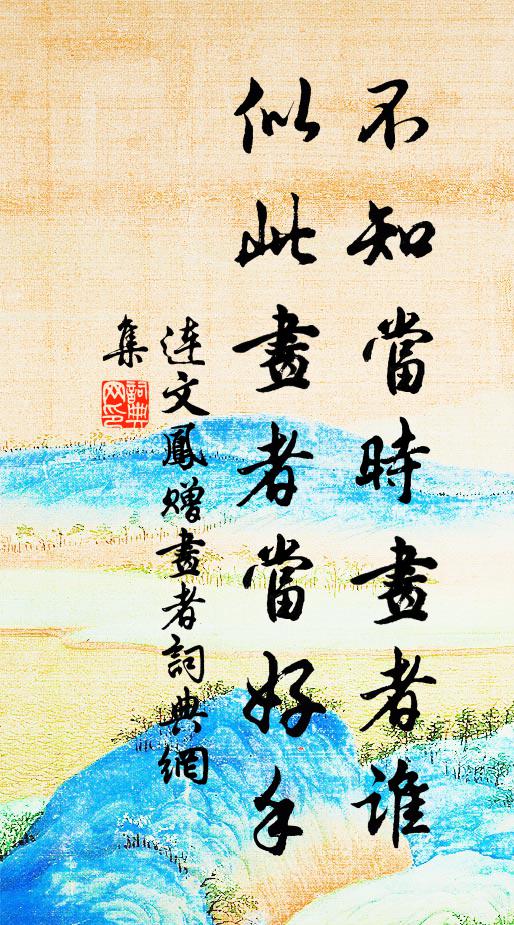 不知當時畫者誰
似此畫者當好手
連文鳳贈畫者詞典網
集
詞典
网印